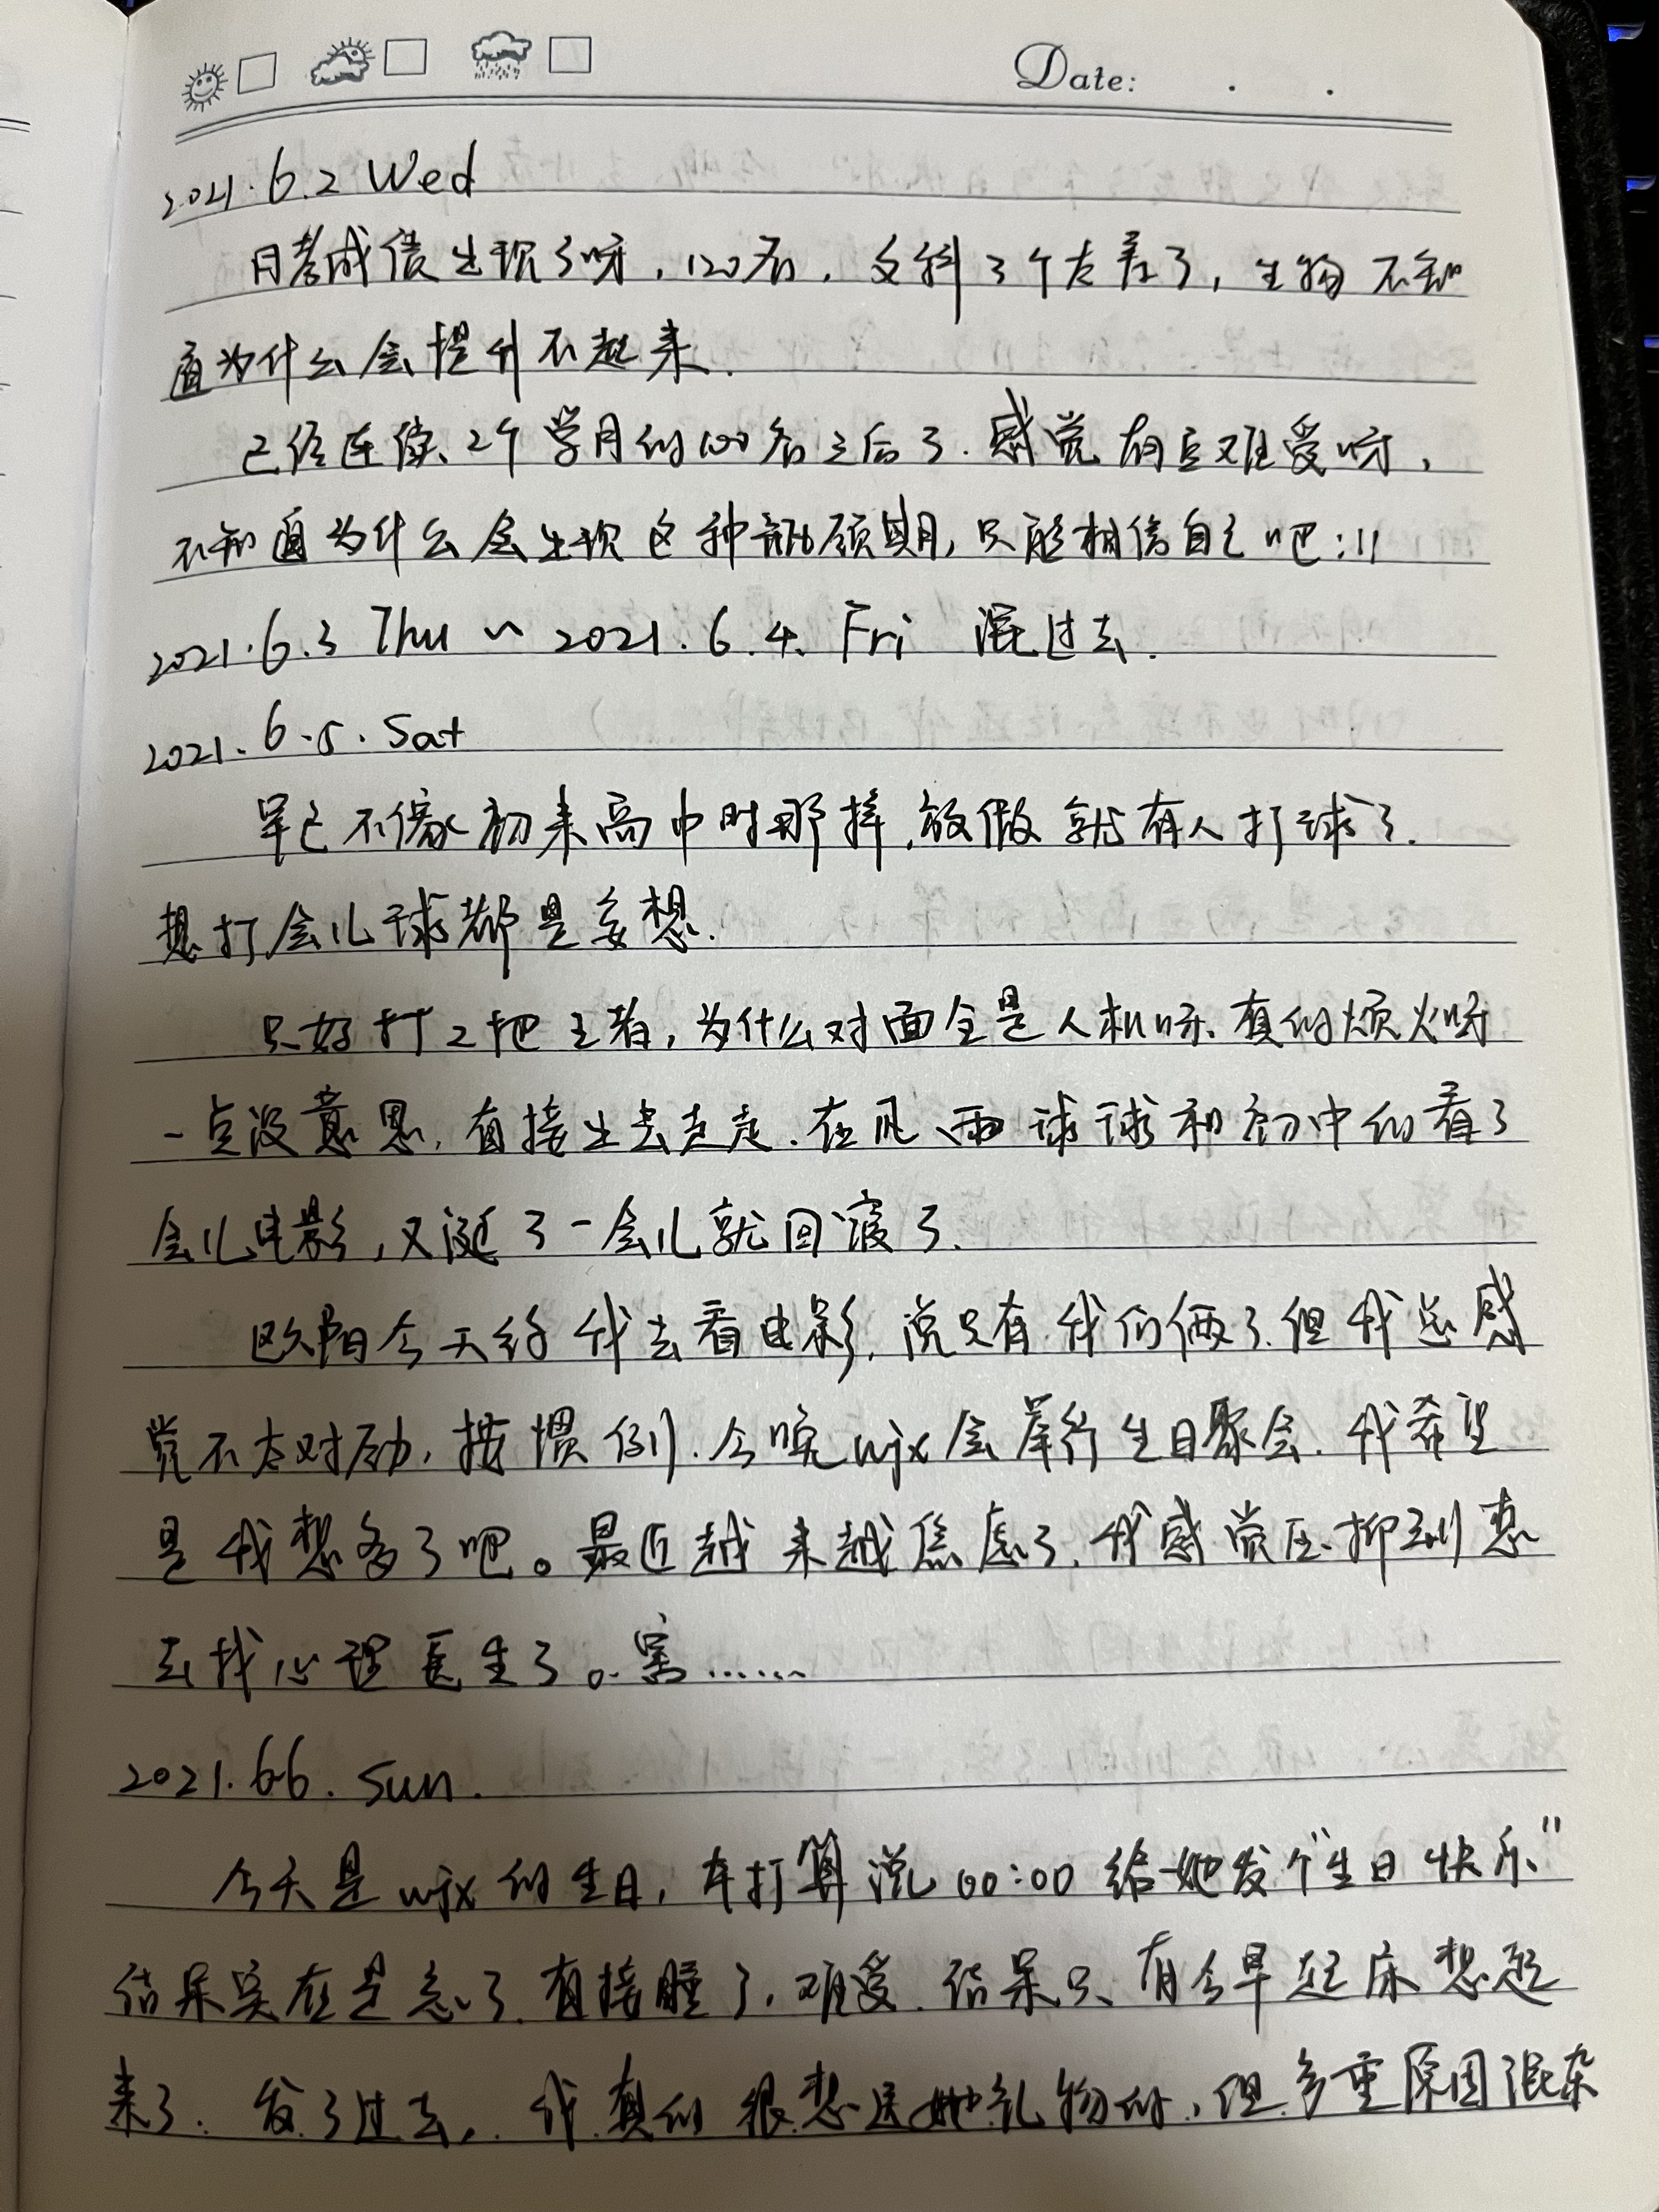 Date: . .
2021.6.2 Wed
月考成绩出现了呀，120名，文科3个太弄了，生物不知
道为什么会提升不起来.
已经连续、2个学月的100名之后了.感觉有点难受呀，
不知道为什么会出现这种瓶颈期，只能相信自己吧:11
2021.6.3 Thu ~ 2021.6.4. Fri 混过去.
2021.6.5. Sat
早已不像初来高中时那样,放假就有人打球了.
想打会儿球都是妄想.
只好打2把王者,为什么对面全是人机呀.真的烦火呀
一点没意思,直接出去走走.在风雨球球和初中的看了
会儿电影,又逛了一会儿就回寝了.
欧阳今天约我去看电影,说只有我们俩了.但我总感
觉不太对劲,按惯例.今晚wjx会举行生日聚会.我希望
是我想多了吧。最近越来越焦虑了,我感觉压抑到想
去找心理医生了。害......
2021.6.6. Sun.
今天是wjx的生日,本打算说00:00给她发个"生日快乐"
结果实在是忘了.直接睡了,难受.结果只有今早起床想起
来了.发了过去,.我真的很想送她礼物的,但多重原因混杂